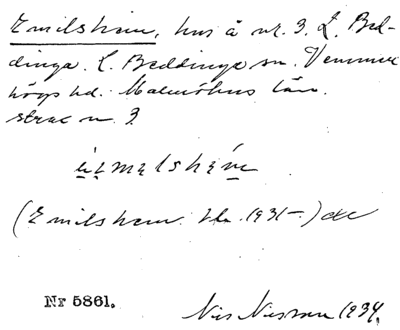 Emilshem, hus å nr. 3. L. Bed-
dinge. L. Beddinge sn. Vemmen-
högs hd. Malmöhus län.
nr 3
(Emilshem. 1931-)
Nr 5861.
Nils Nilsson 1934.